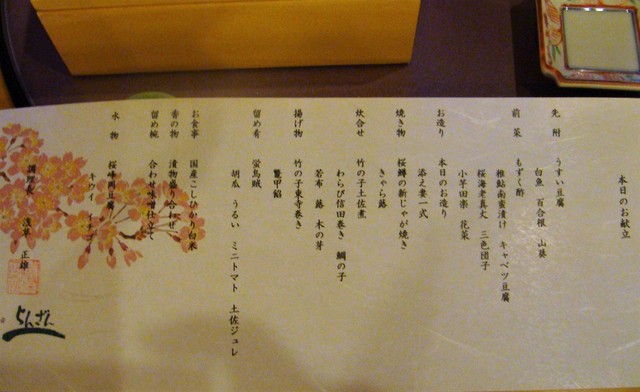 本日のお献立
先附 うすい豆腐
白魚 百合根 山葵
前菜 もずく酢
稚鮎南蛮漬け キャベツ豆腐
桜海老真丈 三色団子
小芋田楽 花菜
お造り 本日のお造り
添え妻一式
焼き物 桜鱒の新じゃが焼き
きゃら蕗
炊合せ 竹の子土佐煮
わらび信田巻き 鯛の子
若布 蕗 木の芽
揚げ物 竹の子東寺巻き
鼈甲餡
留め肴 蛍烏賊
胡瓜 うるい ミニトマト 土佐ジュレ
お食事 国産こしひかり白米
香の物 漬物盛り合わせ
留め椀 合わせ味噌仕立て
水物 桜
キウイ イチゴ
調理長 正雄
とんぼ